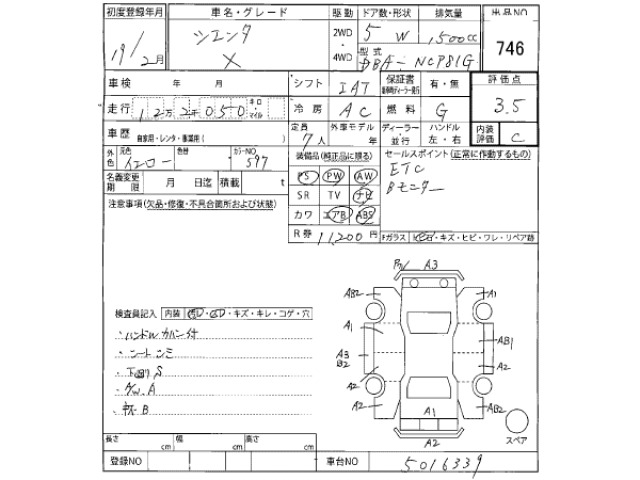 初度登録年月 車名・グレード 駆動 ドア数・形状 排気量 出品NO
19/2月 シエンタ X 2WD ・ 4WD 5 W 1,500cc 746
型式 DBA-NCP81G
車検 年 月 シフト IAT 保証書 有・無 評価点 3.5
走行 12万2千050 キロ・マイル 冷房 AC 燃料 G
車歴 自家用・レンタ・事業用( ) 定員 7人 外車モデル 年 ディーラー・並行 ハンドル 左・右 内装評価 C
外色 元色 イエロー 色替 カラーNO 597 装備品(純正品に限る) セールスポイント(正常に作動するもの)
PS PW AW ETC
名義変更期限 月 日迄 積載 t SR TV ナビ Bモニター
注意事項(欠品・修復・不具合箇所および状態) カワ エアB ABS
R券 11,200円 Fガラス 飛石・キズ・ヒビ・ワレ・リペア跡
A3
AB2 A1
A1 AB1
A3 B2 A2
A2
A2 A1 AB2
A2 スペア
検査員記入 内装 キズ・キレ・コゲ・穴
・ハンドルカバー付
・シートシミ
・下回りS
・A/W A
・B
長さ cm 幅 cm 高さ cm
登録NO 車台NO 5016339